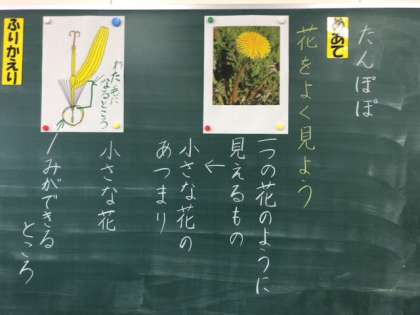 たんぽぽ
めあて
花をよく見よう
一つの花のように
見えるもの
←
小さな花の
あつまり
小さな花
わた毛に
なるところ
みができる
ところ
ふりかえり